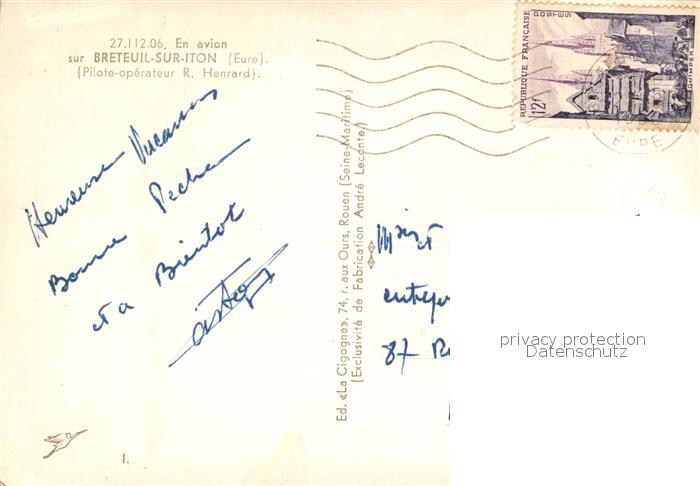 27.112.06. En avion
sur BRETEUIL-SUR-ITON (Eure).
(Pilote-opérateur R. Henrard).
Heureuse Vacances
Bonne Peche
et a Bientot
Ed. «La Cigogne», 74, r. aux Ours, Rouen (Seine-Maritime)
(Exclusivité de Fabrication André Leconte)
1.
REPUBLIQUE FRANÇAISE
POSTES
12F
QUIMPER
EURE
et
87
privacy protection
Datenschutz